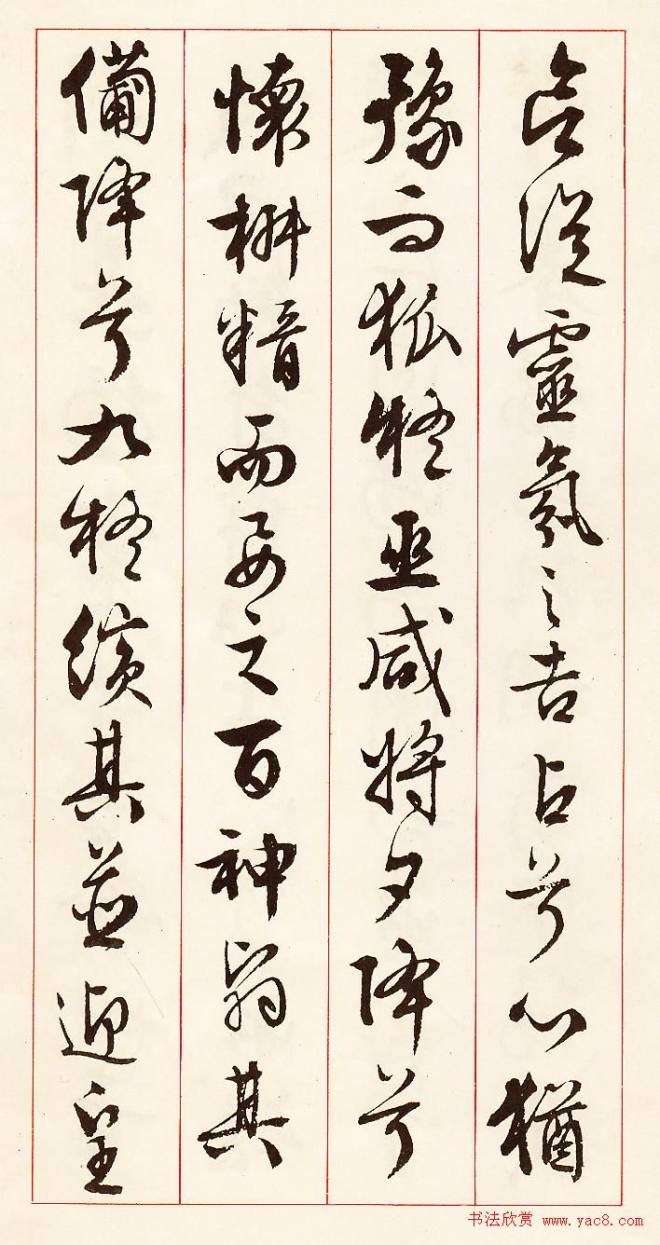 欲從靈氛之吉占兮心猶
豫而狐疑巫咸將夕降兮
懷椒糈而要之百神翳其
備降兮九疑繽其並迎皇
书法欣赏 www.yac8.com